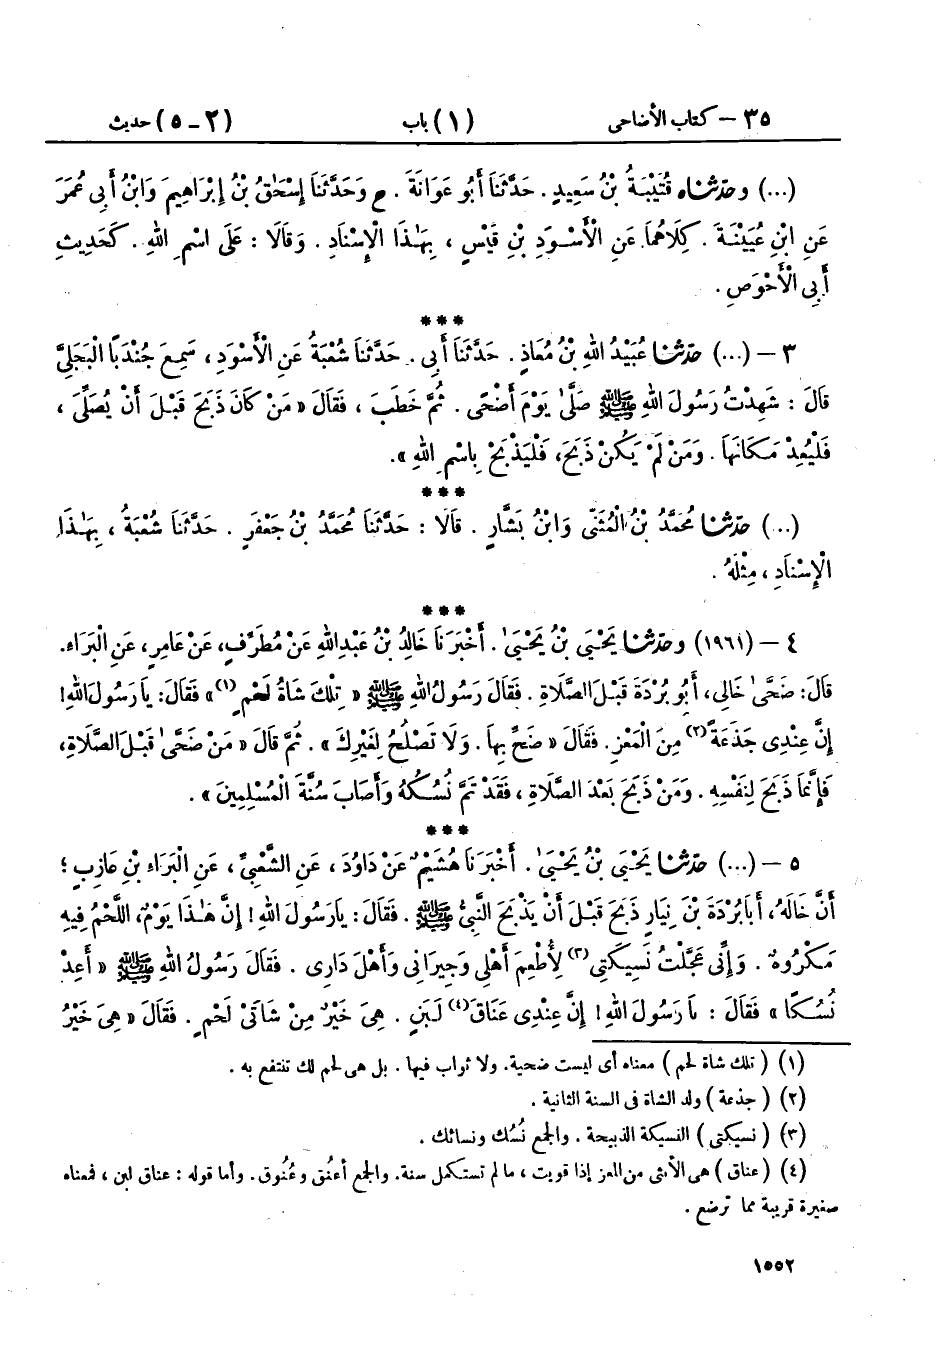 ٣٥ – كتاب الأضاحى (١) باب (٢ – ٥) حديث
(...) وحدّثناه قُتَيْبَةُ بْنُ سَعِيدٍ . حَدَّثَنَا أَبُو عَوَانَةَ . ح وَحَدَّثَنَا إِسْحَقُ بْنُ إِبْرَاهِيمَ وَابْنُ أَبِى عُمَرَ
عَنِ ابْنِ عُيَيْنَةَ . كِلَاهُمَا عَنِ الْأَسْوَدِ بْنِ قَيْسٍ ، بِهَٰذَا الْإِسْنَادِ . وَقَالَا : عَلَى اسْمِ اللهِ . كَحَدِيثِ
أَبِى الْأَحْوَصِ .
***
٣ – (...) حدّثنا عُبَيْدُ اللهِ بْنُ مُعَاذٍ . حَدَّثَنَا أَبِى . حَدَّثَنَا شُعْبَةُ عَنِ الْأَسْوَدِ ، سَمِعَ جُنْدَبًا الْبَجَلِىَّ
قَالَ : شَهِدْتُ رَسُولَ اللهِ ﷺ صَلَّى يَوْمَ أَضْحًى . ثُمَّ خَطَبَ ، فَقَالَ « مَنْ كَانَ ذَبَحَ قَبْلَ أَنْ يُصَلِّىَ ،
فَلْيُعِدْ مَكَانَهَا . وَمَنْ لَمْ يَكُنْ ذَبَحَ، فَلْيَذْبَحْ بِاسْمِ اللهِ ».
***
(...) حدّثنا مُحَمَّدُ بْنُ الْمُثَنَّى وَابْنُ بَشَّارٍ . قَالَا : حَدَّثَنَا مُحَمَّدُ بْنُ جَعْفَرٍ . حَدَّثَنَا شُعْبَةُ ، بِهَٰذَا
الْإِسْنَادِ ، مِثْلَهُ .
***
٤ – (١٩٦١) وحدّثنا يَحْيَى بْنُ يَحْيَىٰ . أَخْبَرَنَا خَالِدُ بْنُ عَبْدِاللهِ عَنْ مُطَرِّفٍ، عَنْ عَامِرٍ، عَنِ الْبَرَاءِ.
قَالَ: ضَحَّىٰ خَالِى، أَبُو بُرْدَةَ قَبْلَ الصَّلَاةِ . فَقَالَ رَسُولُ اللهِ ﷺ « تِلْكَ شَاةُ لَحْمٍ (١)» فَقَالَ: يَا رَسُولَ اللهِ!
إِنَّ عِنْدِى جَذَعَةً(٢) مِنَ الْمَعْزِ. فَقَالَ « ضَحِّ بِهَا. وَلَا تَصْلُحُ لِغَيْرِكَ » . ثُمَّ قَالَ « مَنْ ضَحَّىٰ قَبْلَ الصَّلَاةِ،
فَإِنَّمَا ذَبَحَ لِنَفْسِهِ . وَمَنْ ذَبَحَ بَعْدَ الصَّلَاةِ ، فَقَدْ تَمَّ نُسُكُهُ وَأَصَابَ سُنَّةَ الْمُسْلِمِينَ » .
***
٥ – (...) حدّثنا يَحْيَى بْنُ يَحْيَىٰ . أَخْبَرَنَا هُشَيْمٌ عَنْ دَاوُدَ ، عَنِ الشَّعْبِىِّ ، عَنِ الْبَرَاءِ بْنِ عَازِبٍ ؛
أَنَّ خَالَهُ، أَبَا بُرْدَةَ بْنَ نِيَارٍ ذَبَحَ قَبْلَ أَنْ يَذْبَحَ النَّبِىُّ ﷺ . فَقَالَ: يَا رَسُولَ اللهِ! إِنَّ هَٰذَا يَوْمٌ، اللَّحْمُ فِيهِ
مَكْرُوهٌ . وَإِنِّى عَجَّلْتُ نَسِيكَتِى(٣) لِأُطْعِمَ أَهْلِى وَجِيرَانِى وَأَهْلَ دَارِى . فَقَالَ رَسُولُ اللهِ ﷺ « أَعِدْ
نُسُكًا » فَقَالَ : يَا رَسُولَ اللهِ! إِنَّ عِنْدِى عَنَاقَ(٤) لَبَنٍ . هِىَ خَيْرٌ مِنْ شَاتَىْ لَحْمٍ . فَقَالَ « هِىَ خَيْرُ
(١) ( تلك شاة لحم ) معناه أى ليست ضحية. ولا ثواب فيها . بل هى لحم لك تنتفع به .
(٢) ( جذعة ) ولد الشاة فى السنة الثانية .
(٣) ( نسيكتى ) النسيكة الذبيحة . والجمع نُسُك ونسائك .
(٤) ( عناق ) هى الأنثى من المعز إذا قويت ، ما لم تستكمل سنة. والجمع أعنُق وعُنُوق. وأما قوله : عناق لبن ، فمعناه
صغيرة قريبة مما ترضع .
١٥٥٢